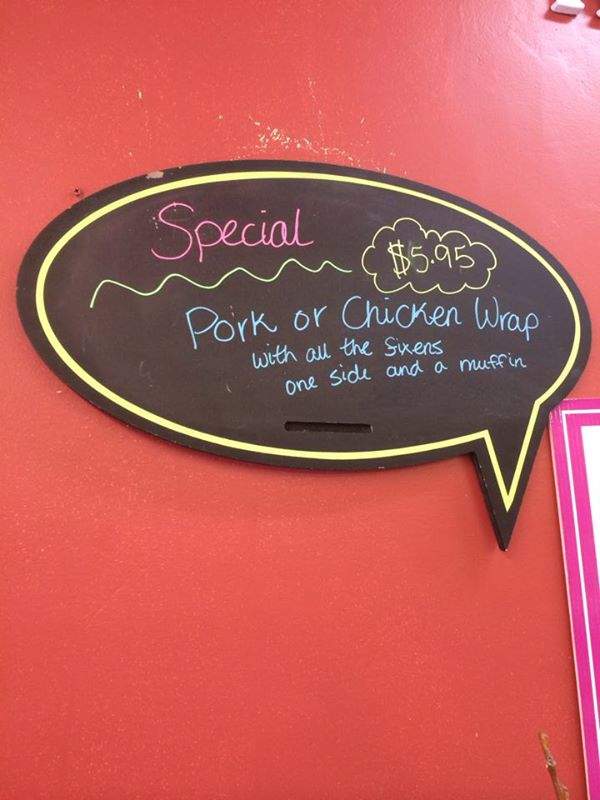 Special
$5.95
Pork or Chicken Wrap
with all the Sixens
one side and a muffin